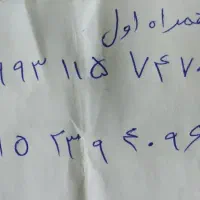 همراه اول
۹۹۳ ۱۱۵ ۷۴۷۰
۱۵ ۲۳۹ ۴۰۹۶